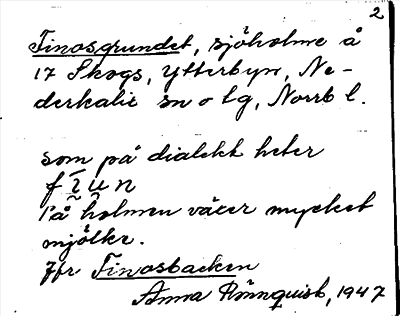 2
Finosgrundet, sjöholme å
17 Skogs, Ytterbyn, Ne-
derkalix sn o tg, Norrb l.
som på dialekt heter
På holmen växer mycket
mjölke.
Jfr Finosbacken
Anna Rönnquist, 1947